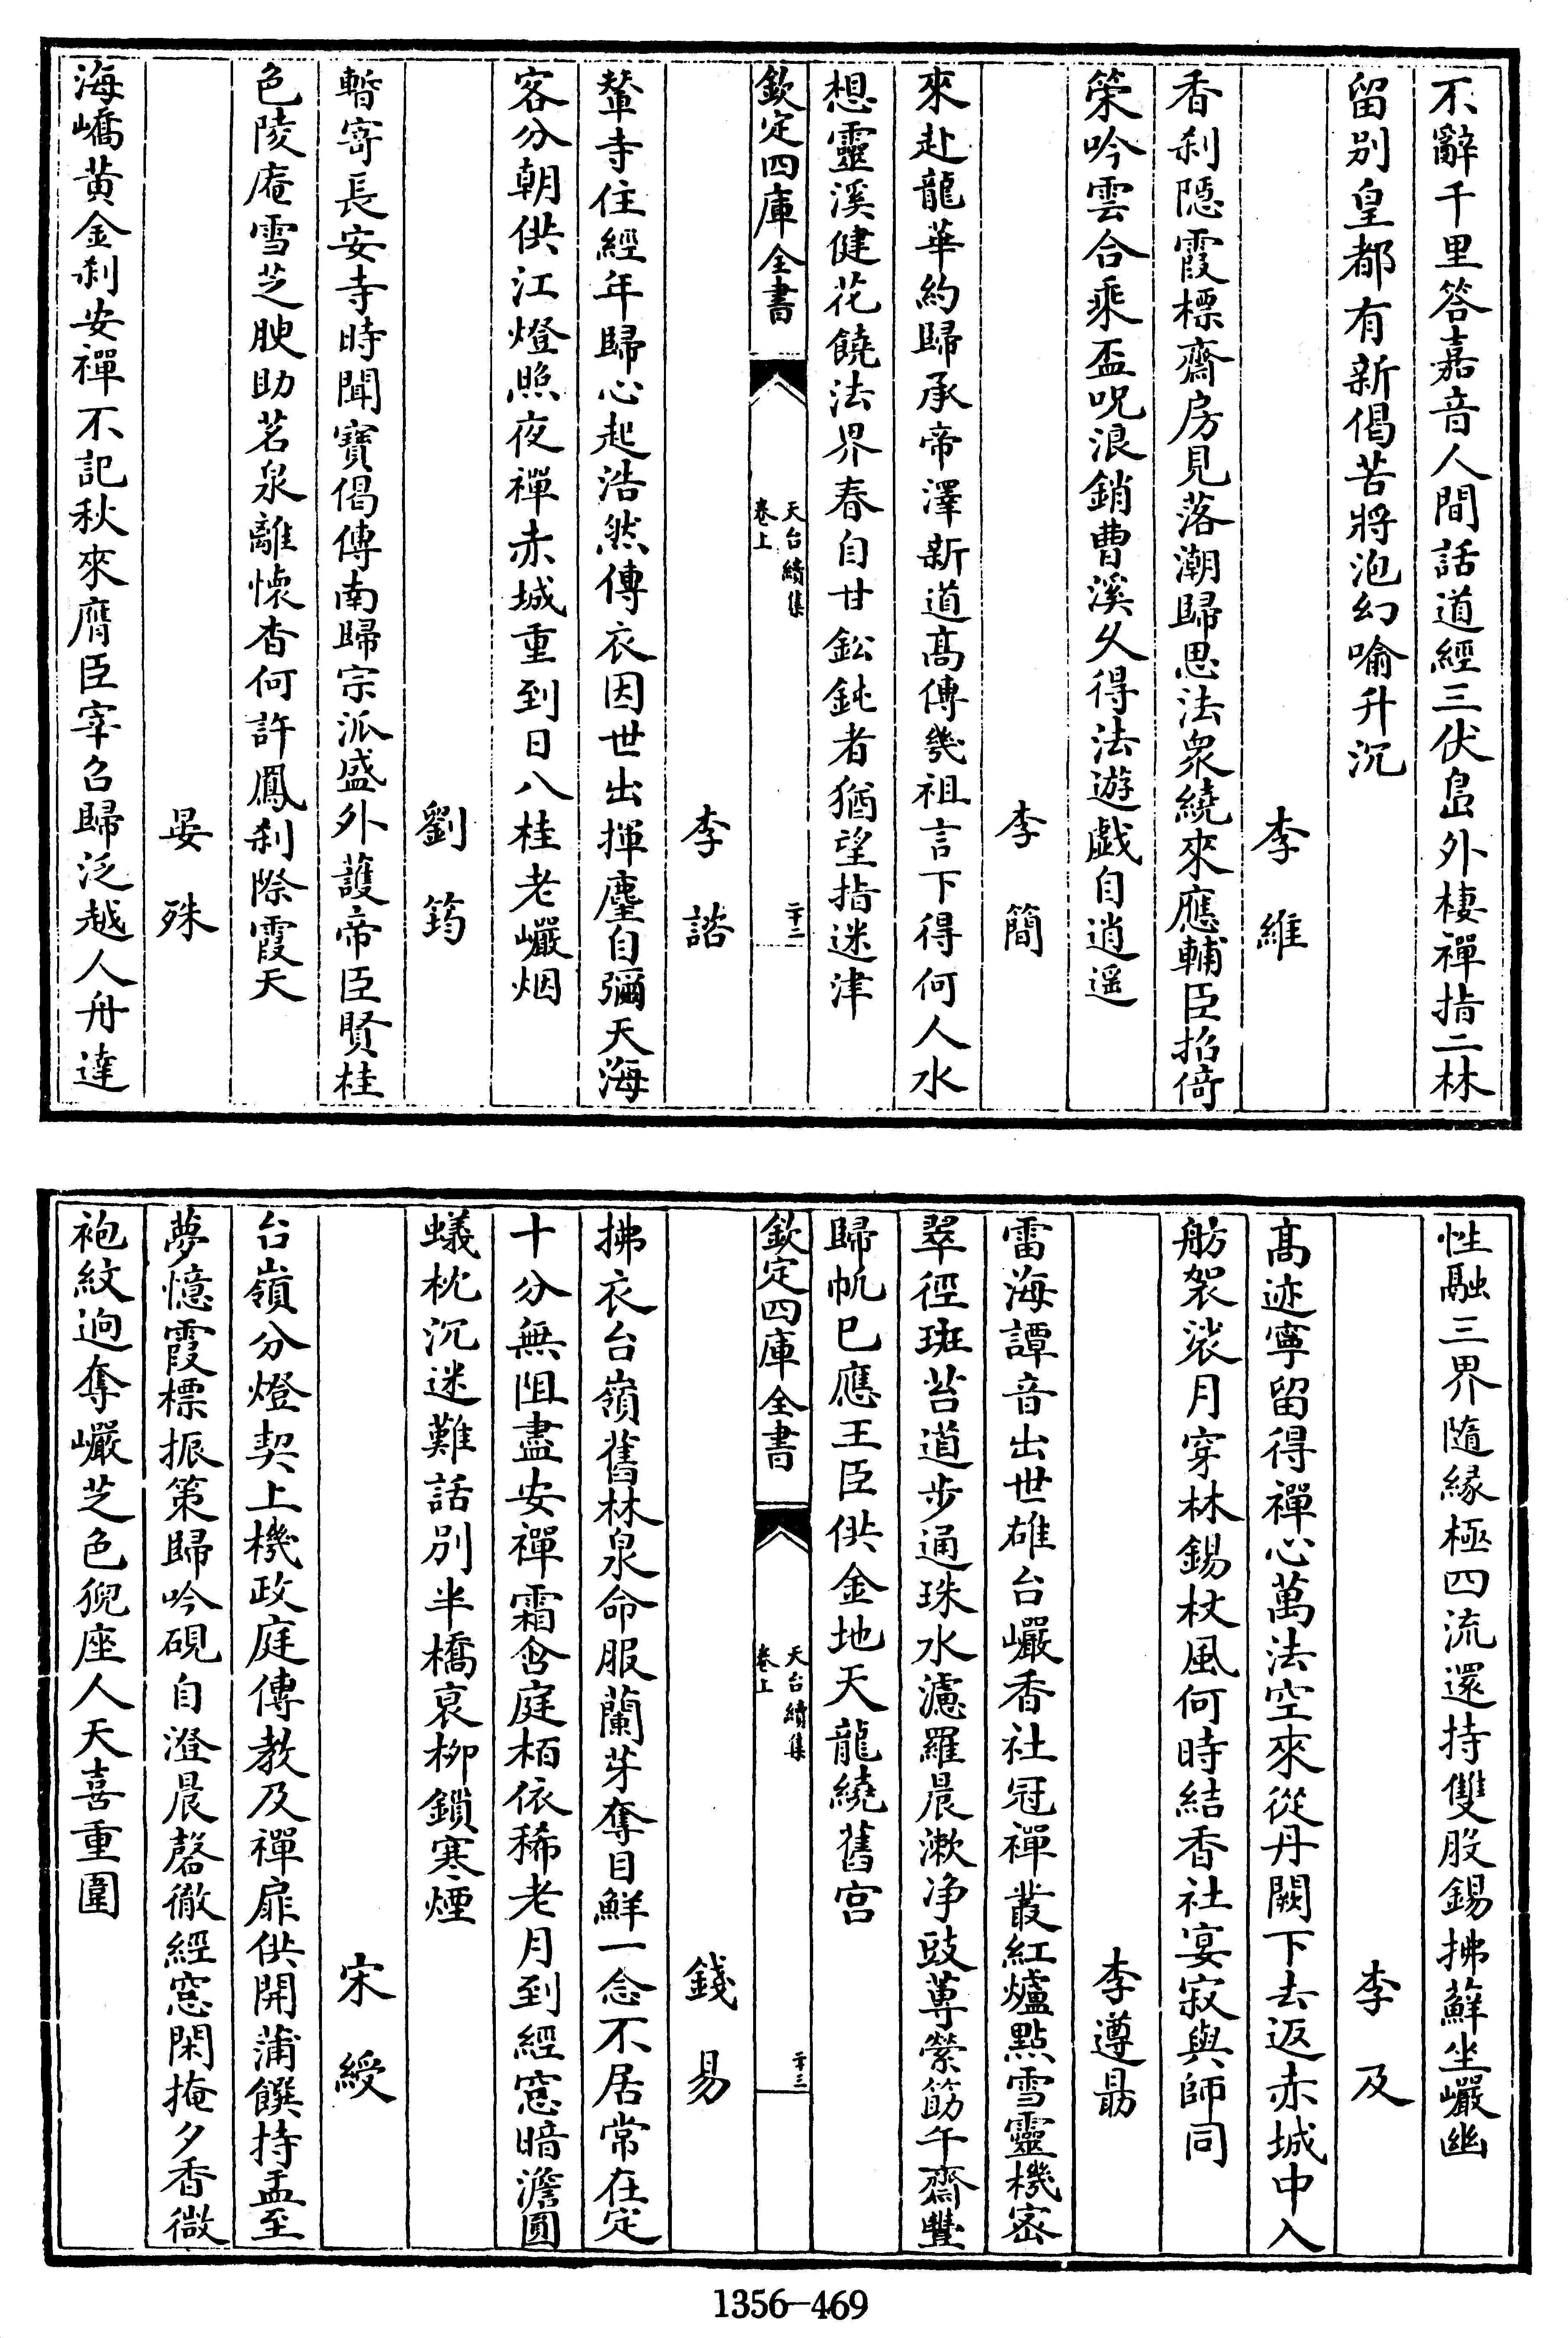 不辭千里答嘉音人間話道經三伏島外棲禪指二林
留別皇都有新偈苦將泡幻喻升沉
李維
香刹隱霞標齋房見落潮歸思法衆繞來應輔臣招倚
策吟雲合乘盃呪浪銷曹溪久得法遊戲自逍遥
李簡
來赴龍華約歸承帝澤新道髙傳幾祖言下得何人水
想靈溪健花饒法界春自甘鈆鈍者猶望指迷津
欽定四庫全書
天台續集
卷上
二十二
李諮
輦寺住經年歸心起浩然傳衣因世出揮麈自彌天海
客分朝供江燈照夜禪赤城重到日八桂老巖烟
劉筠
暫寄長安寺時聞寳偈傳南歸宗派盛外護帝臣賢桂
色陵庵雪芝腴助茗泉離懷杳何許鳳刹際霞天
晏殊
海嶠黃金刹安禪不記秋來膺臣宰召歸泛越人舟達
性融三界隨縁極四流還持雙股錫拂蘚坐巖幽
李及
髙迹寧留得禪心萬法空來從丹闕下去返赤城中入
舫袈裟月穿林錫杖風何時結香社宴寂與師同
李遵勗
雷海譚音出世雄台巖香社冠禪叢紅爐點雪靈機密
翠徑斑苔道步通珠水濾羅晨漱净豉蓴縈筯午齋豐
歸帆已應王臣供金地天龍繞舊宫
欽定四庫全書
天台續集
卷上
二十三
錢易
拂衣台嶺舊林泉命服蘭芽奪目鮮一念不居常在定
十分無阻盡安禪霜含庭栢依稀老月到經窓暗澹圓
蟻枕沉迷難話別半橋衰柳鎖寒煙
宋綬
台嶺分燈契上機政庭傳教及禪扉供開蒲饌持盂至
夢憶霞標振策歸吟硯自澄晨磬徹經窓閑掩夕香微
袍紋逈奪巖芝色猊座人天喜重圍
1356-469